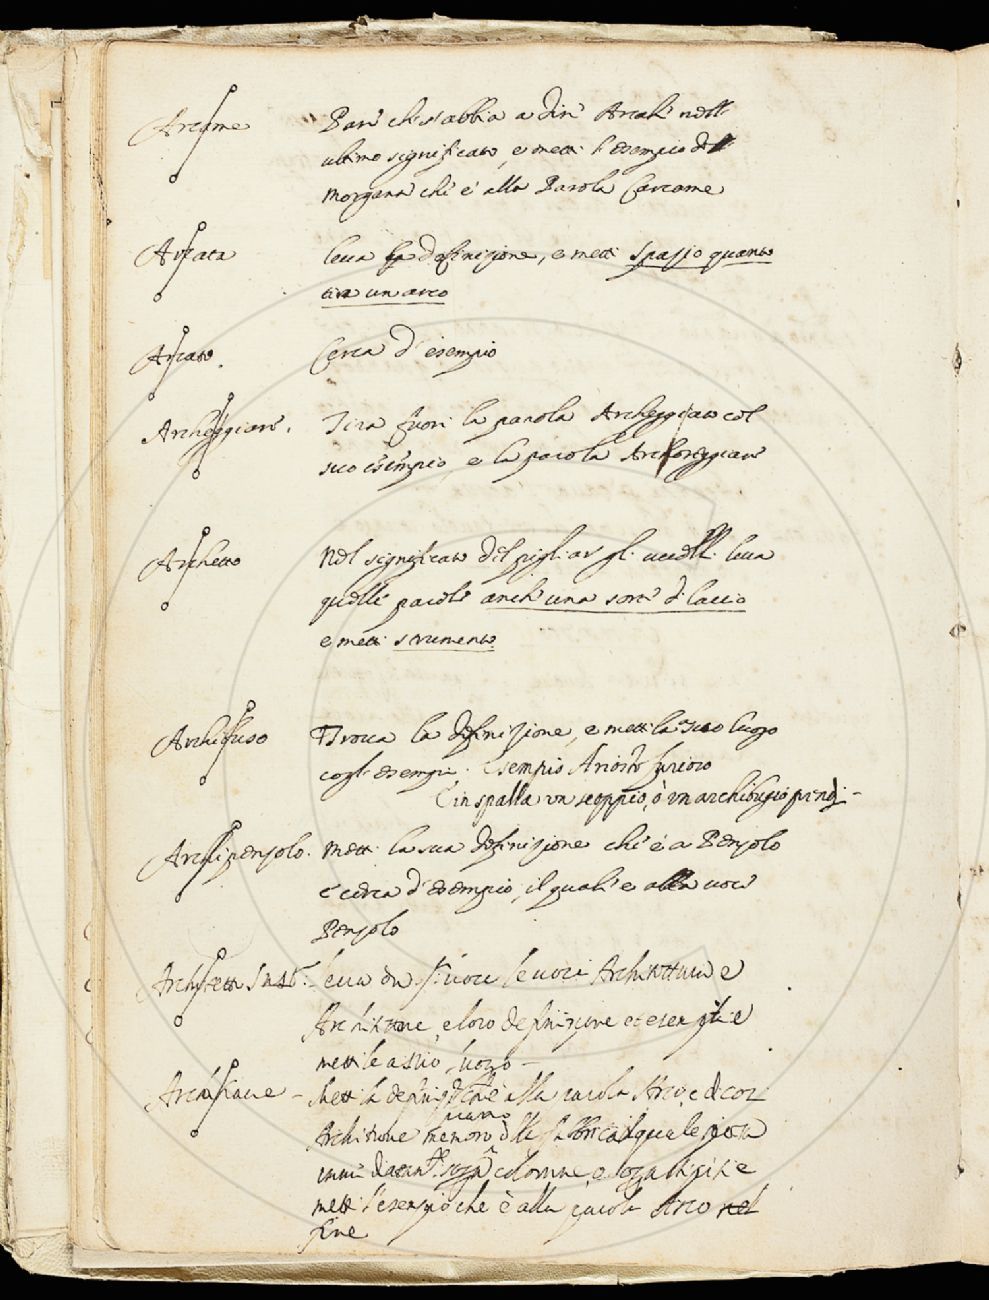 Arcame Pare che s'abbia a dire Arcale nell
ultimo significato, e metti l'esempio del
Morgante che è alla Parola Carcame
Arcata leva la definizione, e metti spazio quanto
tira un arco
Arcato. Cerca d'esempio
Archeggiare. Tira fuori la parola Archeggiato col
suo esempio, e la parola Archoreggiare
Archetto Nel significato del pigliar gli uccelli leva
quelle parole anche una sorte di laccio
e metti strumento.
Archibuso Trova la definizione, e mettila a suo luogo
cogl'esempi. Esempio Ariosto furioso
E in spalla un scoppio, o un archibugio prendi-
Archipenzolo. Metti la sua definizione che è a Penzolo
e cerca d'esempio, il quale è alla voce
Penzolo
leva le voci Architettura e
Architrave, e loro definizione et esempli e
mettile a suo luogo -
Architrave - Metti la definizione che è alla parola Arco, e di così
Architrave membro della fabbrica il quale posa
colonne, e
metti l'esempio che è alla parola Arco nel
fine